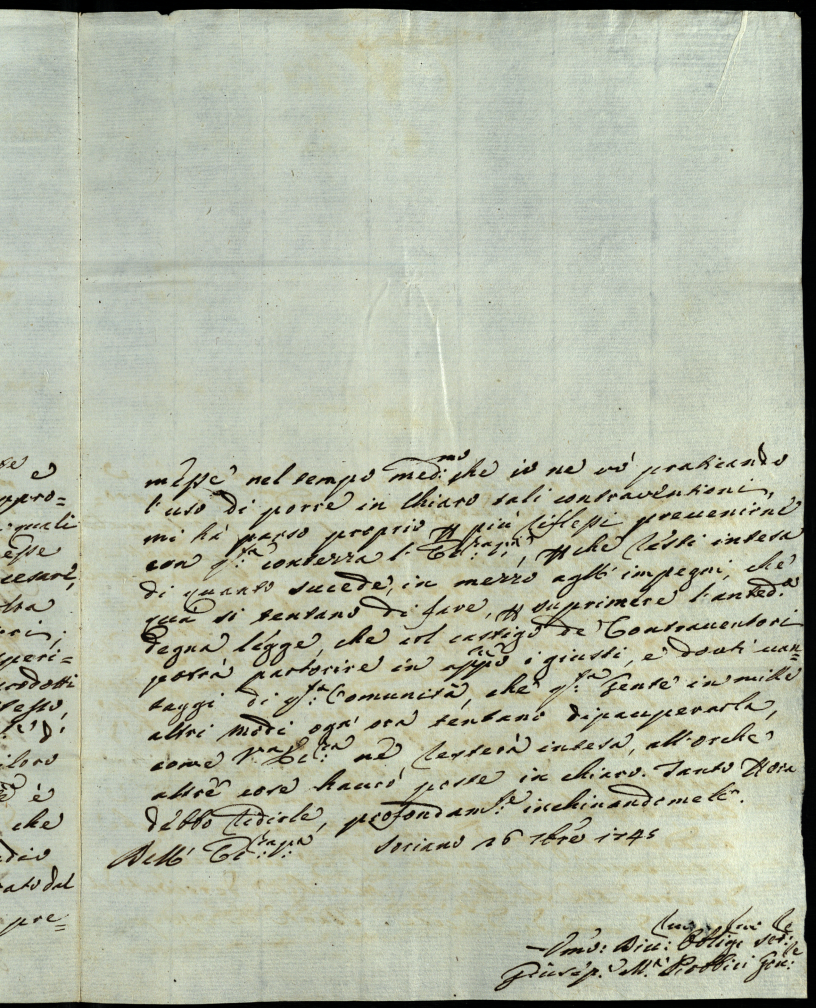 se e
appro=
quali
esse
cesare,
lta
ori,
speri=
prodotti
stesso,
di
loro
è
che
dio
rato dal
pre=
m'esse nel tempo med:mo che io ne vò praticando
l'uso di porre in chiaro tali contraventioni,
mi hà parso proprio più riflessi prevenirne
con q:sta contezza l'Ecc:za V:ra, che resti intesa
di quanto succede, in mezzo agl'impegni, che
quà si tentano di fare, suprimere l'anted:a
degna legge, che col castigo de Contraventori
potrà partorire in app:o i giusti, e dovuti van=
taggi di q:sta Comunità, che q:sta Gente in mille
altri modi ogn'ora tentano dipauperarla,
come V:ra Ecc:za ne resterà intesa, all'orche
altre cose haverò poste in chiaro. Tanto ora
debbo ridirle, profondam:te inchinandomele.
Dell'Ecc:za V:ra Soriano 26 7bre 1745
Umo: Div: Obblig: Ser:
Giusep:e M:a Gov: